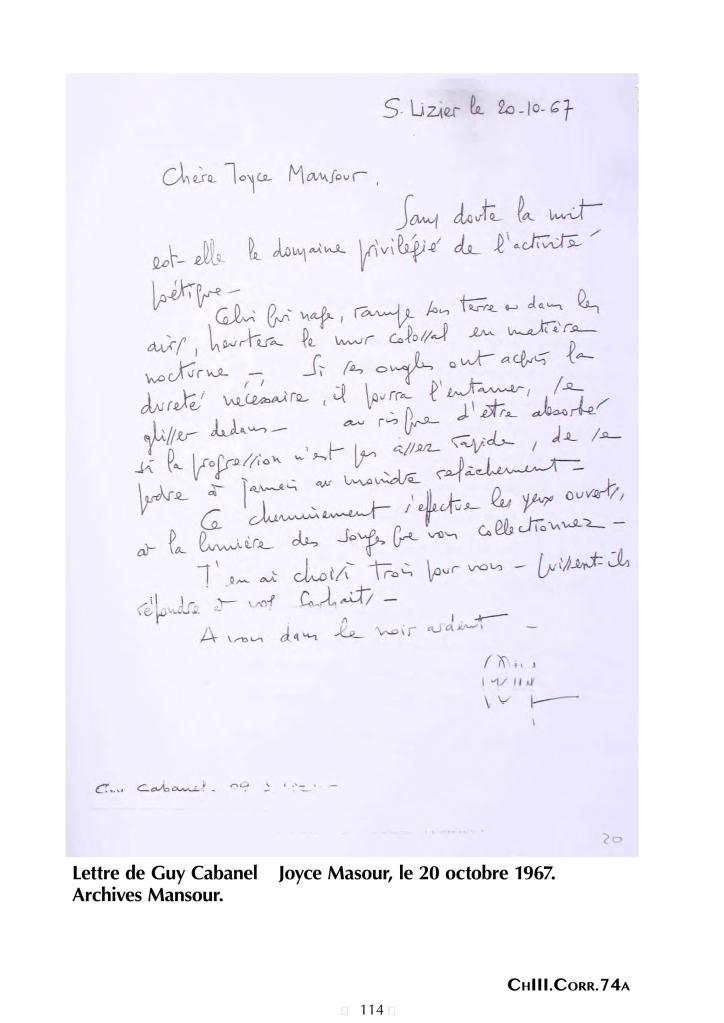 S. Lizier le 20-10-67
Chère Joyce Mansour,
Sans doute la nuit
est-elle le domaine privilégié de l'activité
poétique –
Celui qui nage, rampe sous terre ou dans les
airs, heurtera le mur colossal en matière
nocturne – Si ses ongles ont acquis la
dureté nécessaire, il pourra l'entamer, se
glisser dedans – au risque d'être absorbé
si la progression n'est pas assez rapide, de se
perdre à jamais au moindre relâchement –
Ce cheminement s'effectue les yeux ouverts,
à la lumière des songes que vous collectionnez –
J'en ai choisi trois pour vous – Puissent-ils
répondre à vos souhaits –
A vous dans le noir ardent –
Cabanel
20
Lettre de Guy Cabanel Joyce Masour, le 20 octobre 1967.
Archives Mansour.
CHIII.CORR.74A
114